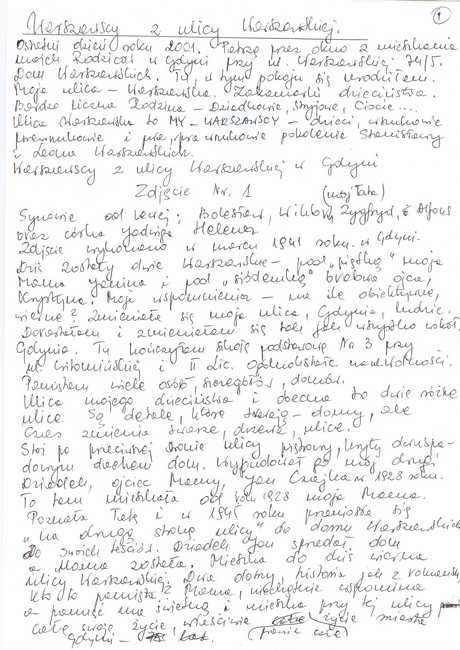 1
Warszawscy z ulicy Warszawskiej.
Ostatni dzień roku 2001. Patrzę przez okno z mieszkania
moich Rodziców w Gdyni przy ul. Warszawskiej 74/5.
Dom Warszawskich. Tu, w tym pokoju się urodziłem.
Moja ulica – Warszawska. Zakamarki dzieciństwa.
Bardzo liczna Rodzina – Dziadkowie, Stryjowie, Ciocie...
Ulica Warszawska to MY – WARSZAWSCY – dzieci, wnukowie
prawnukowie i pra, prawnukowie pokolenie Stanisławy
i Leona Warszawskich.
Warszawscy z ulicy Warszawskiej w Gdyni
Zdjęcie Nr. 1 (mój Tata)
Synowie od lewej; Bolesław, Wiktor, Zygfryd, Alfons
oraz córka Jadwiga Helena.
Zdjęcie wykonano w marcu 1941 roku w Gdyni.
Dziś zostały dwie Warszawskie – pod „piątką” moja
Mama Janina i pod „siódemką” bratowa ojca,
Krystyna. Moje wspomnienia – na ile obiektywne,
wierne? Zmieniała się moja ulica, Gdynia, ludzie.
Dorastałem i zmieniałem się tak jak wszystko wokół.
Gdynia. Tu kończyłem Szkołę podstawową Nr 3 przy
ul. Witomińskiej i II Lic. Ogólnokształc.
Pamiętam wiele osób, szczegółów, domów.
Ulica mojego dzieciństwa i obecna to dwie różne
ulice. Są detale, które trwają – domy, ale
czas zmienia twarze, drzewa, ulice.
Stoi po przeciwnej stronie ulicy piętrowy, kryty dwuspa-
dowym dachem dom. Wybudował go mój drugi
Dziadek, ojciec Mamy, Jan w 1928 roku.
To tam mieszkała od roku 1928 moja Mama.
Poznała Tatę i w 1945 roku przeniosła się
„na drugą stronę ulicy” do domu Warszawskich
Do swoich teściów. Dziadek Jan sprzedał dom
a Mama została. Mieszka do dziś wierna
ulicy Warszawskiej. Dwa domy, historia jak z romansu,
kto to pamięta? Mama, niechętnie wspomina
a pamięć ma świetną i mieszka przy tej ulicy
całe swoje życie, właściwie życie miasta
Gdyni – (prawie całe)